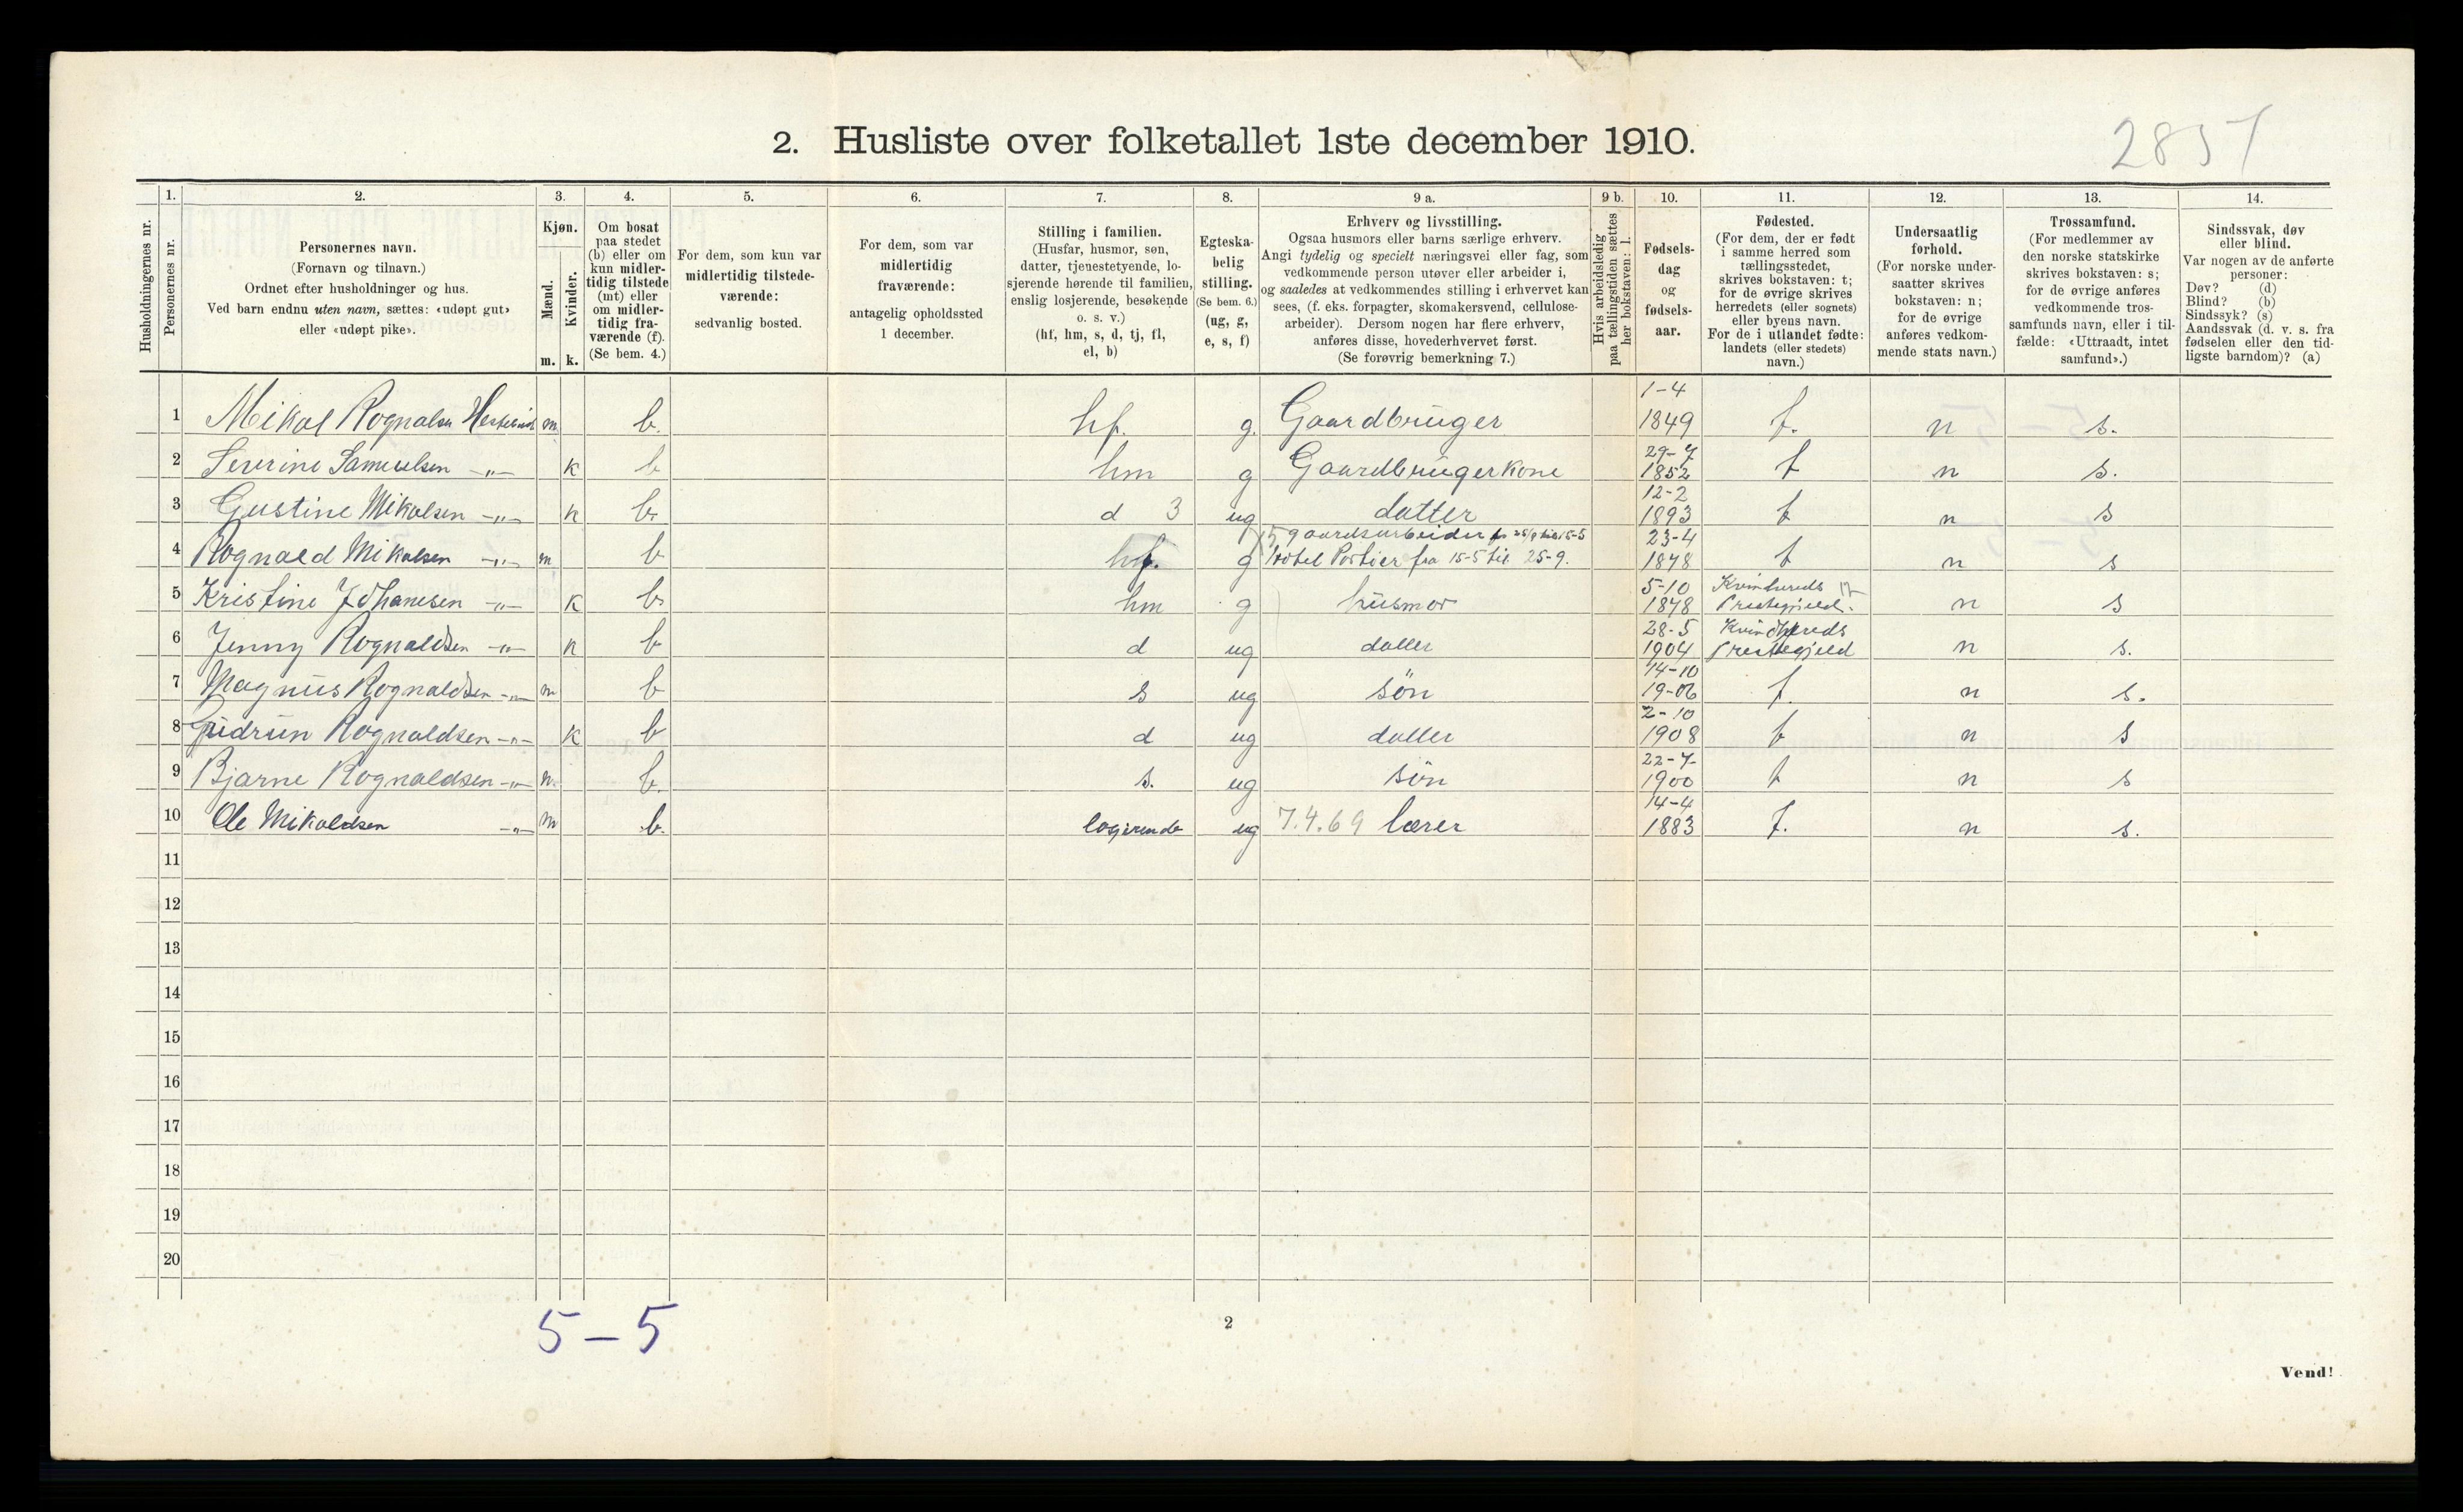 2857
2. Husliste over folketallet 1ste december 1910.
Husholdningernes nr.
1.
Personernes nr.
2.
Personernes navn.
(Fornavn og tilnavn.)
Ordnet efter husholdninger og hus.
Ved barn endnu uten navn, sættes: «udøpt gut»
eller «udøpt pike».
3.
Kjøn.
Mænd.
Kvinder.
m. k.
4.
Om bosat
paa stedet
(b) eller om
kun midler-
tidig tilstede
(mt) eller
om midler-
tidig fra-
værende (f).
(Se bem. 4.)
5.
For dem, som kun var
midlertidig tilstede-
værende:
sedvanlig bosted.
6.
For dem, som var
midlertidig
fraværende:
antagelig opholdssted
1 december.
7.
Stilling i familien.
(Husfar, husmor, søn,
datter, tjenestetyende, lo-
sjerende hørende til familien,
enslig losjerende, besøkende
o. s. v.)
(hf, hm, s, d, tj, fl,
el, b)
8.
Egteska-
belig
stilling.
(Se bem. 6.)
(ug, g,
e, s, f)
9 a.
Erhverv og livsstilling.
Ogsaa husmors eller barns særlige erhverv.
Angi tydelig og specielt næringsvei eller fag, som
vedkommende person utøver eller arbeider i,
og saaledes at vedkommendes stilling i erhvervet kan
sees, (f. eks. forpagter, skomakersvend, cellulose-
arbeider). Dersom nogen har flere erhverv,
anføres disse, hovederhvervet først.
(Se forøvrig bemerkning 7.)
9 b.
Hvis arbeidsledig
paa tællingstiden sættes
her bokstaven: l.
10.
Fødsels-
dag
og
fødsels-
aar.
11.
Fødested.
(For dem, der er født
i samme herred som
tællingsstedet,
skrives bokstaven: t;
for de øvrige skrives
herredets (eller sognets)
eller byens navn.
For de i utlandet fødte:
landets (eller stedets)
navn.)
12.
Undersaatlig
forhold.
(For norske under-
saatter skrives
bokstaven: n;
for de øvrige
anføres vedkom-
mende stats navn.)
13.
Trossamfund.
(For medlemmer av
den norske statskirke
skrives bokstaven: s;
for de øvrige anføres
vedkommende tros-
samfunds navn, eller i til-
fælde: «Uttraadt, intet
samfund».)
14.
Sindssvak, døv
eller blind.
Var nogen av de anførte
personer:
Døv? (d)
Blind? (b)
Sindssyk? (s)
Aandssvak (d. v. s. fra
fødselen eller den tid-
ligste barndom)? (a)
1 Mikal Rognalsen m b. hf. g. Gaardbruger 1-4 1849 t. n s.
2 Severine Samuelsen -"- k b hm g Gaardbrugerkone 29-7 1852 t n s.
3 Gustine Mikalsen -"- k b. d 3 ug datter 12-2 1893 t n s
4 Rognald Mikalsen -"- m b hf. g gaardsarbeider fr 25/9 til 15-5
Hotel Portier fra 15-5 til 25-9. 23-4 1878 t n s
5 Kristine Johanesen -"- k b. hm g husmor 5-10 1878 Kvinhereds
Prestegjeld. n s
6 Jenny Rognaldsen -"- k b d ug datter 28-5 1904 Kvindhereds
Prestegjeld n s.
7 Magnus Rognaldsen -"- m b s ug søn 14-10 19-06 t. n s.
8 Gudrun Rognaldsen -"- k b d ug datter 2-10 1908 t n s
9 Bjarne Rognaldsen -"- m. b. s. ug søn 22-7- 1900 t n s
10 Ole Mikaldsen -"- m b. losjerende ug 7.4.69 lærer 14-4 1883 t. n s.
11
12
13
14
15
16
17
18
19
20
5-5
2
Vend!